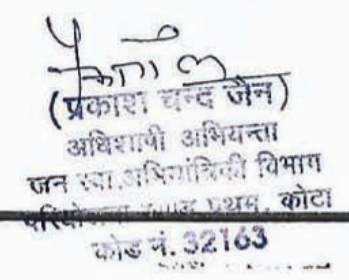 (प्रकाश चन्द जैन)
अधिशाषी अभियन्ता
जन स्वा.अभियांत्रिकी विभाग
परियोजना खण्ड प्रथम, कोटा
कोड नं. 32163